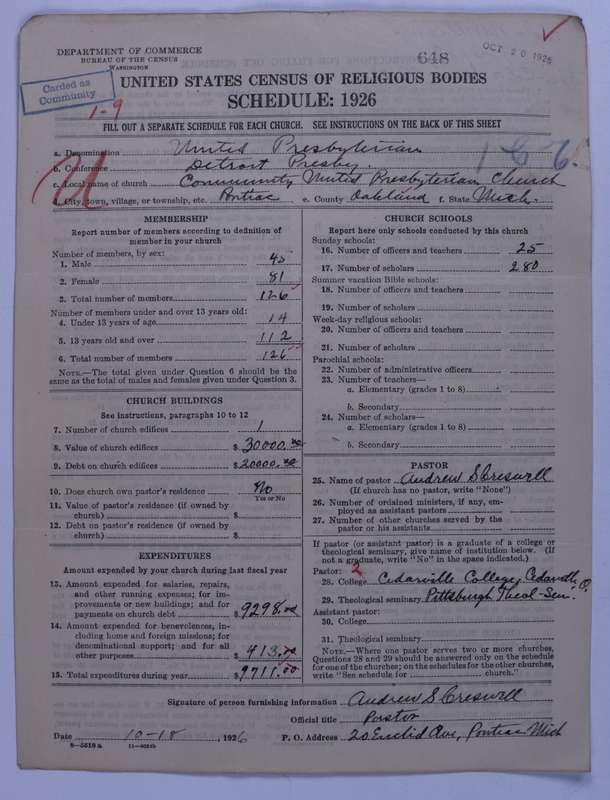 DEPARTMENT OF COMMERCE
BUREAU OF THE CENSUS
WASHINGTON
648
OCT 20 1926
Carded as
Community
1-9
UNITED STATES CENSUS OF RELIGIOUS BODIES
SCHEDULE: 1926
FILL OUT A SEPARATE SCHEDULE FOR EACH CHURCH. SEE INSTRUCTIONS ON THE BACK OF THIS SHEET
a. Denomination United Presbyterian
b. Conference Detroit Presby.
c. Local name of church Community United Presbyterian Church
d. City, town, village, or township, etc. Pontiac e. County Oakland f. State Mich.
MEMBERSHIP
Report number of members according to definition of
member in your church
Number of members, by sex:
1. Male 45
2. Female 81
3. Total number of members 126
Number of members under and over 13 years old:
4. Under 13 years of age 14
5. 13 years old and over 112
6. Total number of members 126
NOTE.—The total given under Question 6 should be the
same as the total of males and females given under Question 3.
CHURCH BUILDINGS
See instructions, paragraphs 10 to 12
7. Number of church edifices 1
8. Value of church edifices $ 30000.00
9. Debt on church edifices $ 20000.00
10. Does church own pastor's residence No
Yes or No
11. Value of pastor's residence (if owned by
church) $
12. Debt on pastor's residence (if owned by
church) $
EXPENDITURES
Amount expended by your church during last fiscal year
13. Amount expended for salaries, repairs,
and other running expenses; for im-
provements or new buildings; and for
payments on church debt $ 9298.00
14. Amount expended for benevolences, in-
cluding home and foreign missions; for
denominational support; and for all
other purposes $ 413.00
15. Total expenditures during year $ 9711.00
CHURCH SCHOOLS
Report here only schools conducted by this church
Sunday schools:
16. Number of officers and teachers 25
17. Number of scholars 280
Summer vacation Bible schools:
18. Number of officers and teachers
19. Number of scholars
Week-day religious schools:
20. Number of officers and teachers
21. Number of scholars
Parochial schools:
22. Number of administrative officers
23. Number of teachers—
a. Elementary (grades 1 to 8)
b. Secondary
24. Number of scholars—
a. Elementary (grades 1 to 8)
b. Secondary
PASTOR
25. Name of pastor Andrew S Creswell
(If church has no pastor, write "None")
26. Number of ordained ministers, if any, em-
ployed as assistant pastors
27. Number of other churches served by the
pastor or his assistants
If pastor (or assistant pastor) is a graduate of a college or
theological seminary, give name of institution below. (If
not a graduate, write "No" in the space indicated.)
Pastor: 2
28. College Cedarville College, Cedarville O.
29. Theological seminary Pittsburgh Theol-Sem.
Assistant pastor:
30. College
31. Theological seminary
NOTE.—Where one pastor serves two or more churches,
Questions 28 and 29 should be answered only on the schedule
for one of the churches; on the schedules for the other churches,
write "See schedule for church."
Signature of person furnishing information Andrew S Creswell
Official title Pastor
Date 10-18, 1926 P. O. Address 20 Euclid Ave, Pontiac Mich
8-5518 a